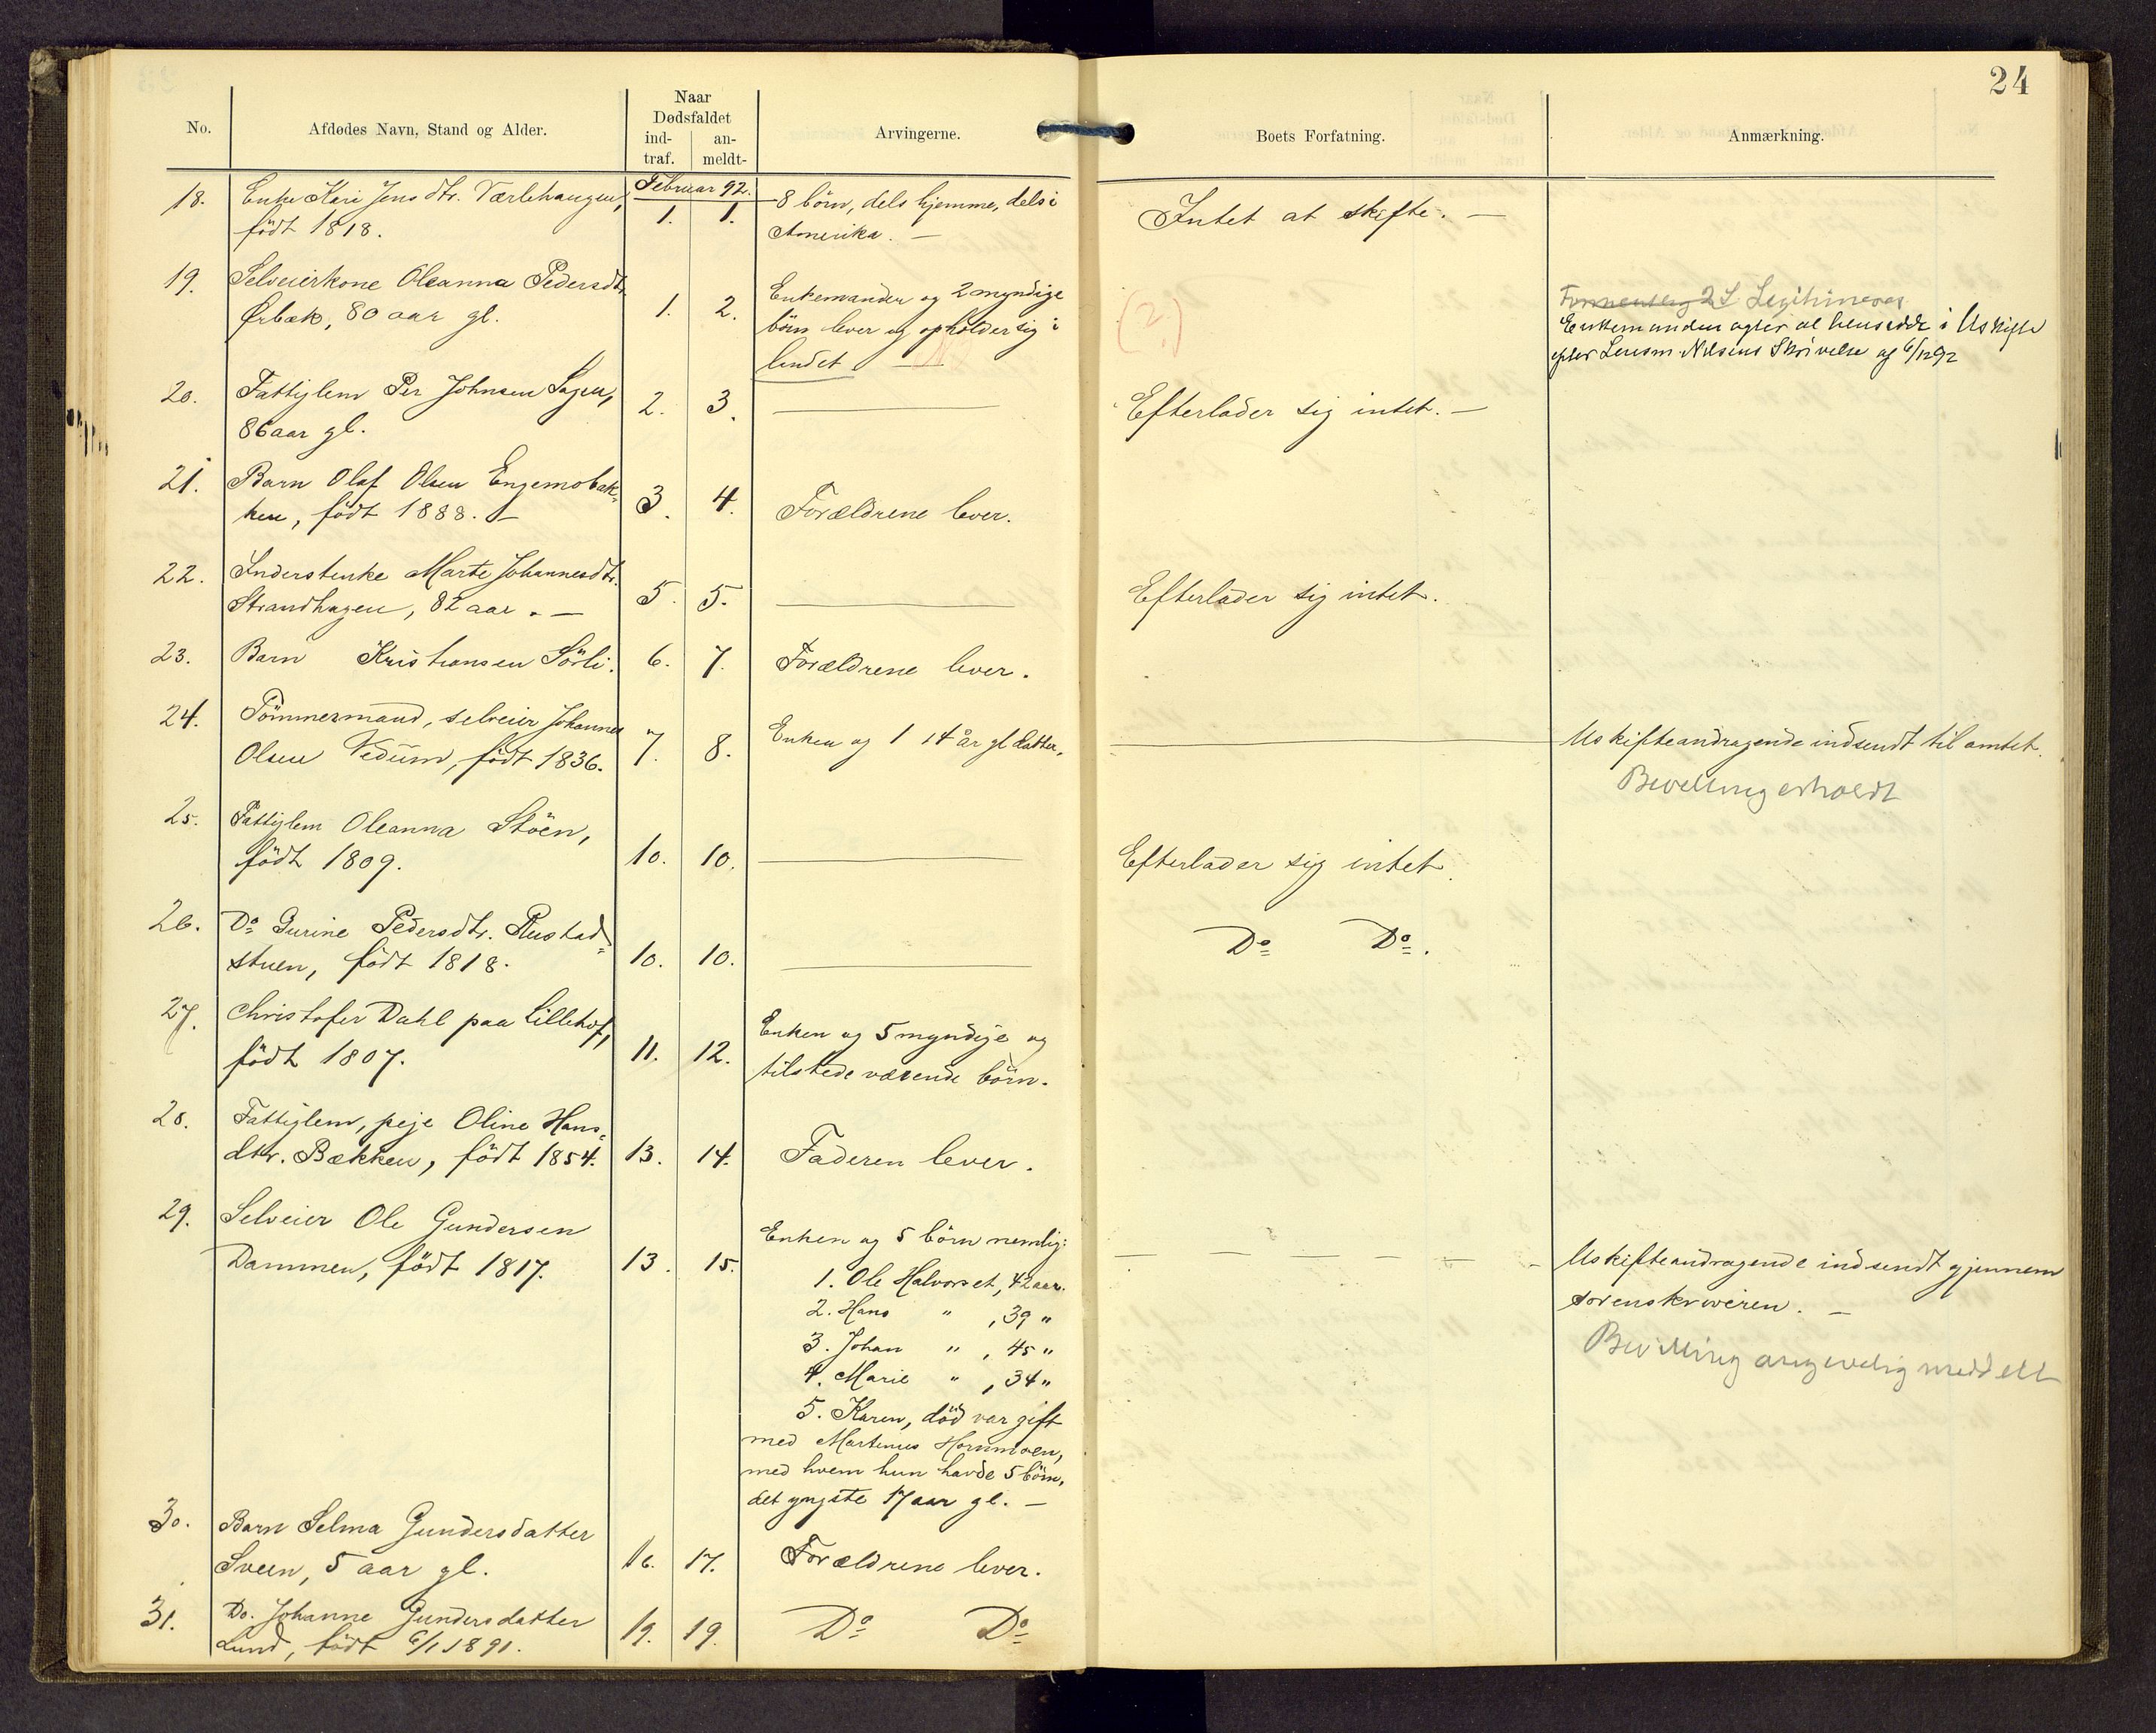 24
No.
Afdødes Navn, Stand og Alder.
Naar
Dødsfaldet
ind-
traf.
an-
meldt-
Arvingerne.
Boets Forfatning.
Anmærkning.
Februar 92.
18. Enke Kari Jensdtr. Værlehaugen, 1. 1. 8 börn, dels hjemme, dels i Intet at skifte. —
födt 1818. Amerika. —
19. Selveierkone Oleanna Pedersdtr. 1. 2. Enkemanden og 2 myndige (2.)
Ørbæk, 80 aar gl. börn lever og opholder sig i
landet
Legitimeres
Enkemanden agter at hensidde i Uskifte
efter Lensm. Nilsens Skrivelse af 6/12 92
20. Fattiglem Per Johnsen Sagen, 2. 3. — Efterlader sig intet. —
86 aar gl.
21. Barn Olaf Olsen Engemobak- 3. 4. Forældrene lever.
ken, födt 1888. —
22. Inderstenke Marte Johannesdtr. 5. 5. — Efterlader sig intet.
Strandhagen, 82 aar. —
23. Barn Kristiansen Sörli. 6. 7. Forældrene lever.
24. Tömmermand, selveier Johannes 7. 8. Enken og 1 14 år gl datter. — Uskifteandragende indsendt til amtet.
Olsen Vedum, födt 1836.
Bevilling erholdt
25. Fattiglem Oleanna Stöen, 10. 10. — Efterlader sig intet.
födt 1809.
26. Do Gurine Pedersdtr. Rustad- 10. 10. — Do Do.
stuen, födt 1818.
27. Christofer Dahl paa Lillehof, 11. 12. Enken og 5 myndige og
födt 1807. tilstedeværende börn.
28. Fattiglem, pige Oline Hans- 13. 14. Faderen lever.
dtr. Bækken, födt 1854.
29. Selveier Ole Gundersen 13. 15. Enken og 5 börn nemlig: — — — — — Uskifteandragende indsendt gjennem
Dammen, födt 1817. 1. Ole Halvorset, 42 aar. sorenskriveren. —
2. Hans " , 39 "
3. Johan " , 45 " Bevilling meddelt
4. Marie " , 34 "
5. Karen, död var gift
med Martinus Hornmoen,
med hvem hun havde 5 börn,
det yngste 17 aar gl. —
30. Barn Selma Gundersdatter 16. 17. Forældrene lever.
Sveen, 5 aar gl.
31. Do. Johanne Gundersdatter 19. 19. Do Do
Lund, födt 6/1 1891.